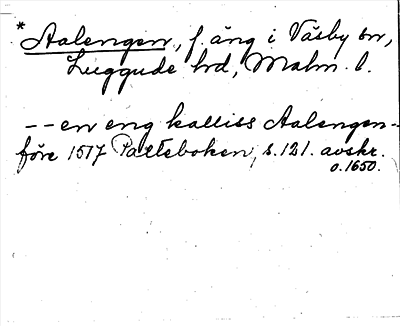 * Aalengen, f. äng i Väsby sn,
Luggude hd, Malm. l.
-- en eng kalliss Aalengen --
före 1517 Palteboken, s. 121. avskr.
o. 1650.